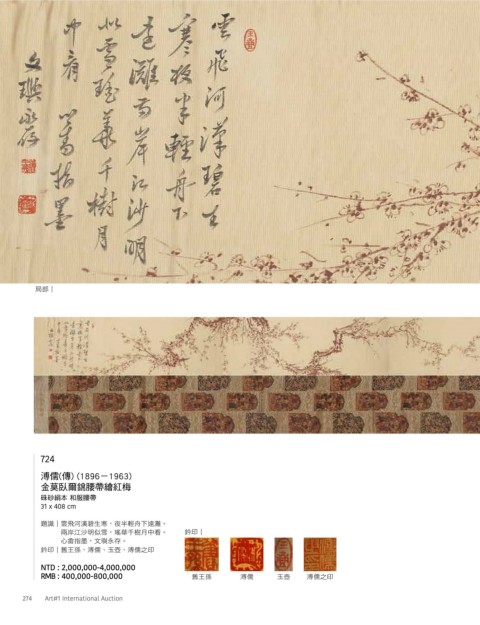 雲飛河漢碧生
寒夜半輕舟下
遠灘兩岸江沙明
似雪瑤華千樹月
中看 心畬指墨
文瑛永存
局部｜
724
溥儒(傳) (1896－1963)
金莫臥爾錦腰帶繪紅梅
硃砂絹本 和服腰帶
31 x 408 cm
題識｜雲飛河漢碧生寒，夜半輕舟下遠灘。
兩岸江沙明似雪，瑤華千樹月中看。
心畬指墨，文瑛永存。
鈐印｜舊王孫、溥儒、玉壺、溥儒之印
NTD : 2,000,000-4,000,000
RMB : 400,000-800,000
鈐印｜
舊王孫 溥儒 玉壺 溥儒之印
274 Art#1 International Auction